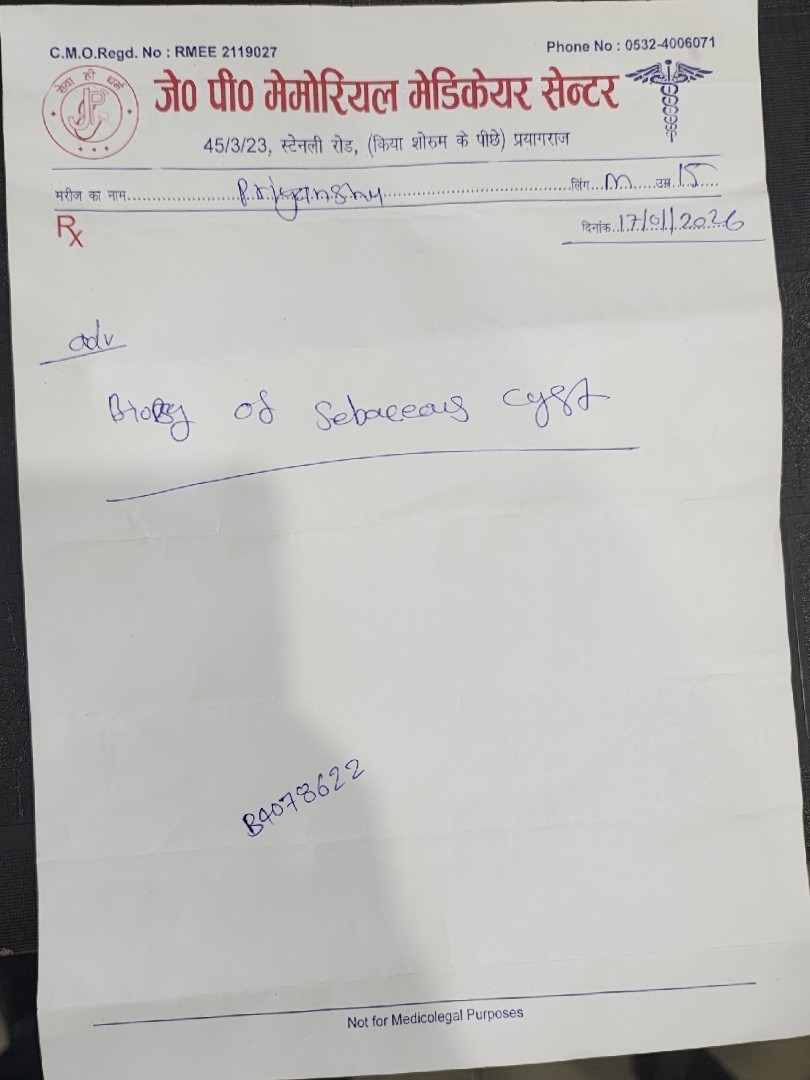 C.M.O.Regd. No : RMEE 2119027
Phone No : 0532-4006071
सेवा ही धर्म
जे0 पी0 मेमोरियल मेडिकेयर सेन्टर
45/3/23, स्टेनली रोड, (किया शोरुम के पीछे) प्रयागराज
मरीज का नाम Priyanshu लिंग M उम्र 15
Rx
दिनांक 17/01/2026
adv
Biopsy of Sebaceous cyst
B4078622
Not for Medicolegal Purposes